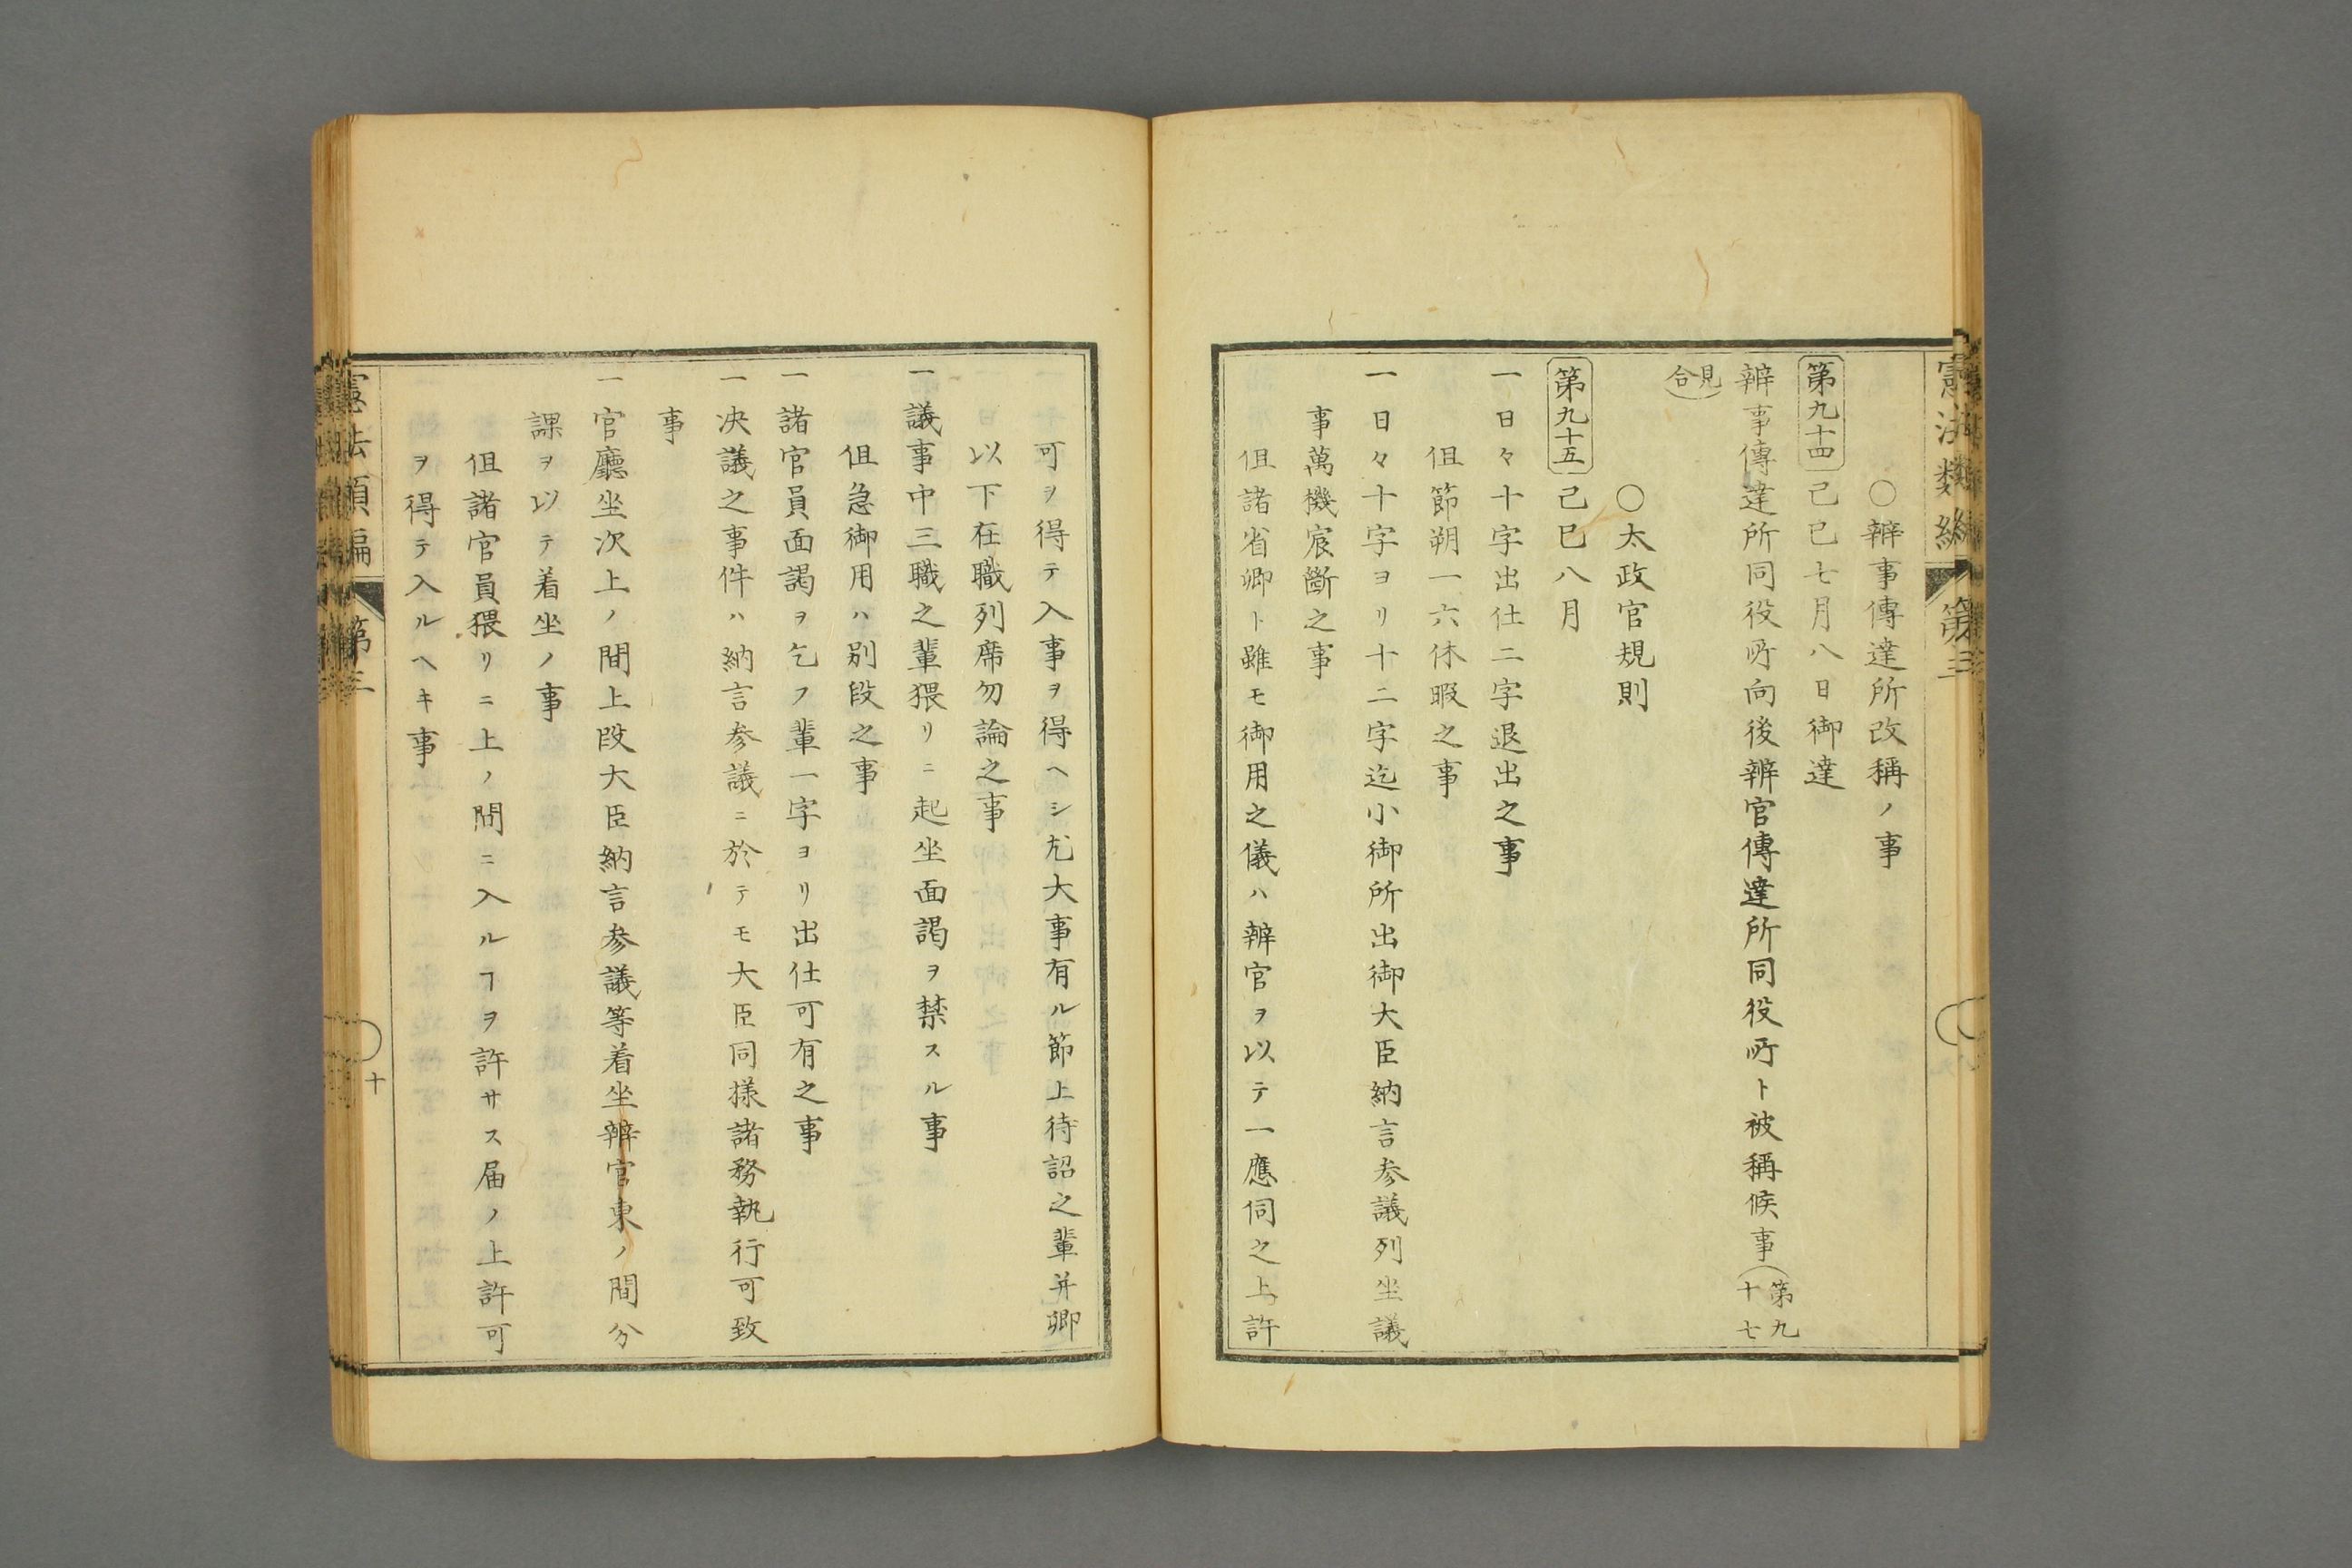 憲法類編 第三
〇辨事傳達所改稱ノ事
第九十四 己巳七月八日御達
辨事傳達所同役所向後辨官傳達所同役所ト被稱候事(第九十七
見合)
〇太政官規則
第九十五 己巳八月
一日々十字出仕二字退出之事
但節朔一六休暇之事
一日々十字ヨリ十二字迄小御所出御大臣納言参議列坐議
事萬機宸斷之事
但諸省卿ト雖モ御用之儀ハ辨官ヲ以テ一應伺之上許
可ヲ得テ入事ヲ得ヘシ尤大事有ル節上待詔之輩并卿
以下在職列席勿論之事
一議事中三職之輩猥リニ起坐面謁ヲ禁スル事
但急御用ハ別段之事
一諸官員面謁ヲ乞フ輩一字ヨリ出仕可有之事
一决議之事件ハ納言参議ニ於テモ大臣同様諸務執行可致
事
一官廳坐次上ノ間上段大臣納言参議等着坐辨官東ノ間分
課ヲ以テ着坐ノ事
但諸官員猥リニ上ノ間ニ入ルヿヲ許サス届ノ上許可
ヲ得テ入ルヘキ事
憲法類編 第三 十